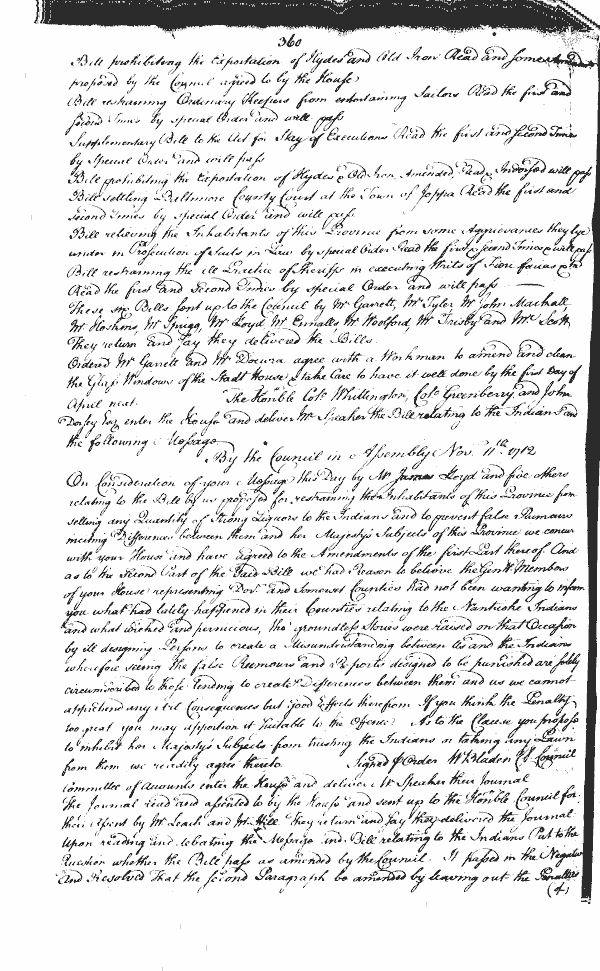 360
Bill prohibiting the Exportation of Hydes and Old Iron Read and some
proposed by the Council agreed to by the House
Bill restraining Ordinary Keepers from entertaining Sailors Read the first and
second Times by Special Order and will pass
Supplementary Bill to the Act for Stay of Executions Read the first and second Times
by Special Order and will pass
Bill prohibiting the Exportation of Hydes & Old Iron Amended Read & Indorsed will pass
Bill settling Baltimore County Court at the Town of Joppa Read the first and
second Times by special Order and will pass
Bill relieving the Inhabitants of this Province from some Aggrievances they lye
under in Prosecution of Suits in Law by special Order Read the first & second Times & will pass
Bill restraining the ill Practice of Sheriffs in executing Writs of Fieri facias
Read the first and second Times by special Order and will pass
These six Bills sent up to the Council by Mr Garrett, Mr Tyler Mr John Mackall
Mr Hoskins, Mr Sprigg, Mr Loyd Mr Ennalls Mr Woolford, Mr Frisby and Mr Scott,
They return and say they delivered the Bills.
Ordered Mr Garrett and Mr Docura agree with a Workman to amend and clean
the Glass Windows of the Stadt House & take Care to have it well done by the first Day of
April next. The Honble Colo Whittington, Colo Greenberry, and John
Dorsey Esq enter the House and deliver Mr Speaker the Bill relating to the Indians and
the following Message
By the Council in Assembly Nov. 11th 1712
On Consideration of your Message this Day by Mr James Loyd and five others
relating to the Bill by us proposed for restraining the Inhabitants of this Province from
selling any Quantity of Strong Liquors to the Indians and to prevent false Rumours
inciting Differences between them and her Majesty's Subjects of this Province we concur
with your House and have agreed to the Amendments of the first Part thereof And
as to the Second Part of the said Bill we had Reason to believe the Gent. Members
of your House representing Dor. and Somerset Counties had not been wanting to inform
you what had lately happened in their Counties relating to the Nanticoke Indians
and what wicked and pernicious, tho' groundless Stories were raised on that Occasion
by ill designing Persons to create a Misunderstanding between Us and the Indians
wherefore seeing the false Rumours and Reports designed to be punished are solely
circumscribed to those tending to create Differences between them and us we cannot
apprehend any evil Consequences but good Effects therefrom If you think the Penalty
too great you may apportion it suitable to the Offence. As to the Clause you propose
to inhibit her Majesty's Subjects from trusting the Indians or taking any Pawn
from them we readily agree thereto Signed p Order W Bladen Cl Council
Committee of Accounts enter the House and deliver Mr Speaker their Journal
The Journal read and assented to by the House and sent up to the Honble Council for
their Assent by Mr Leads and Mr Hill They return and say they delivered the Journal
Upon reading and debating the Message and Bill relating to the Indians Put to the
Question whether the Bill pass as amended by the Council. It passed in the Negative
And Resolved that the second Paragraph be amended by leaving out the Penalties